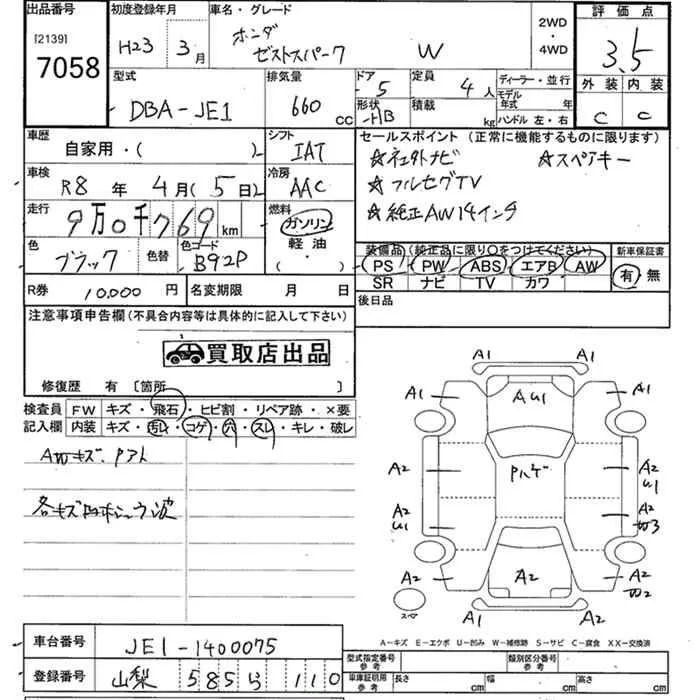 出品番号
[2139]
7058
初度登録年月
H23 3月
車名・グレード
ホンダ
ゼストスパーク W
2WD
・
4WD
評価点
3.5
外装 内装
C C
型式
DBA-JE1
排気量
660 cc
ドア
5
形状
HB
定員
4人
積載
kg
ディーラー・並行
モデル
年式 年
ハンドル 左・右
車歴
自家用・( )
シフト
IAT
車検
R8年 4月(5日)
冷房
AAC
走行
9万0千769km
燃料
ガソリン
軽油
( )
色
ブラック
色替
色コード
B92P
セールスポイント (正常に機能するものに限ります)
☆社外ナビ ☆スペアキー
☆フルセグTV
☆純正AW14インチ
装備品(純正品に限り○をつけてください)
PS PW ABS エアB AW
SR ナビ TV カワ
新車保証書
有・無
R券 10,000円
名変期限 月 日
後日品
注意事項申告欄(不具合内容等は具体的に記入して下さい)
買取店出品
修復歴 有〔箇所 〕
検査員
記入欄
FW キズ・飛石・ヒビ割・リペア跡・×要
内装 キズ・汚レ・コゲ・穴・スレ・キレ・破レ
AWキズ、
A1 A1
A1 AU1 A1
A2 Pハゲ A2
U1
A2
U1
A2
W3
A2 A2 A2
W2
スペア
A1 A1
A-キズ E-エクボ U-凹み W-補修跡 S-サビ C-腐食 XX-交換済
車台番号 JE1-1400075
登録番号 山梨 585 ら 110
型式指定番号
参考
類別区分番号
参考
車庫証明用
参考
長さ cm 幅 cm 高さ cm